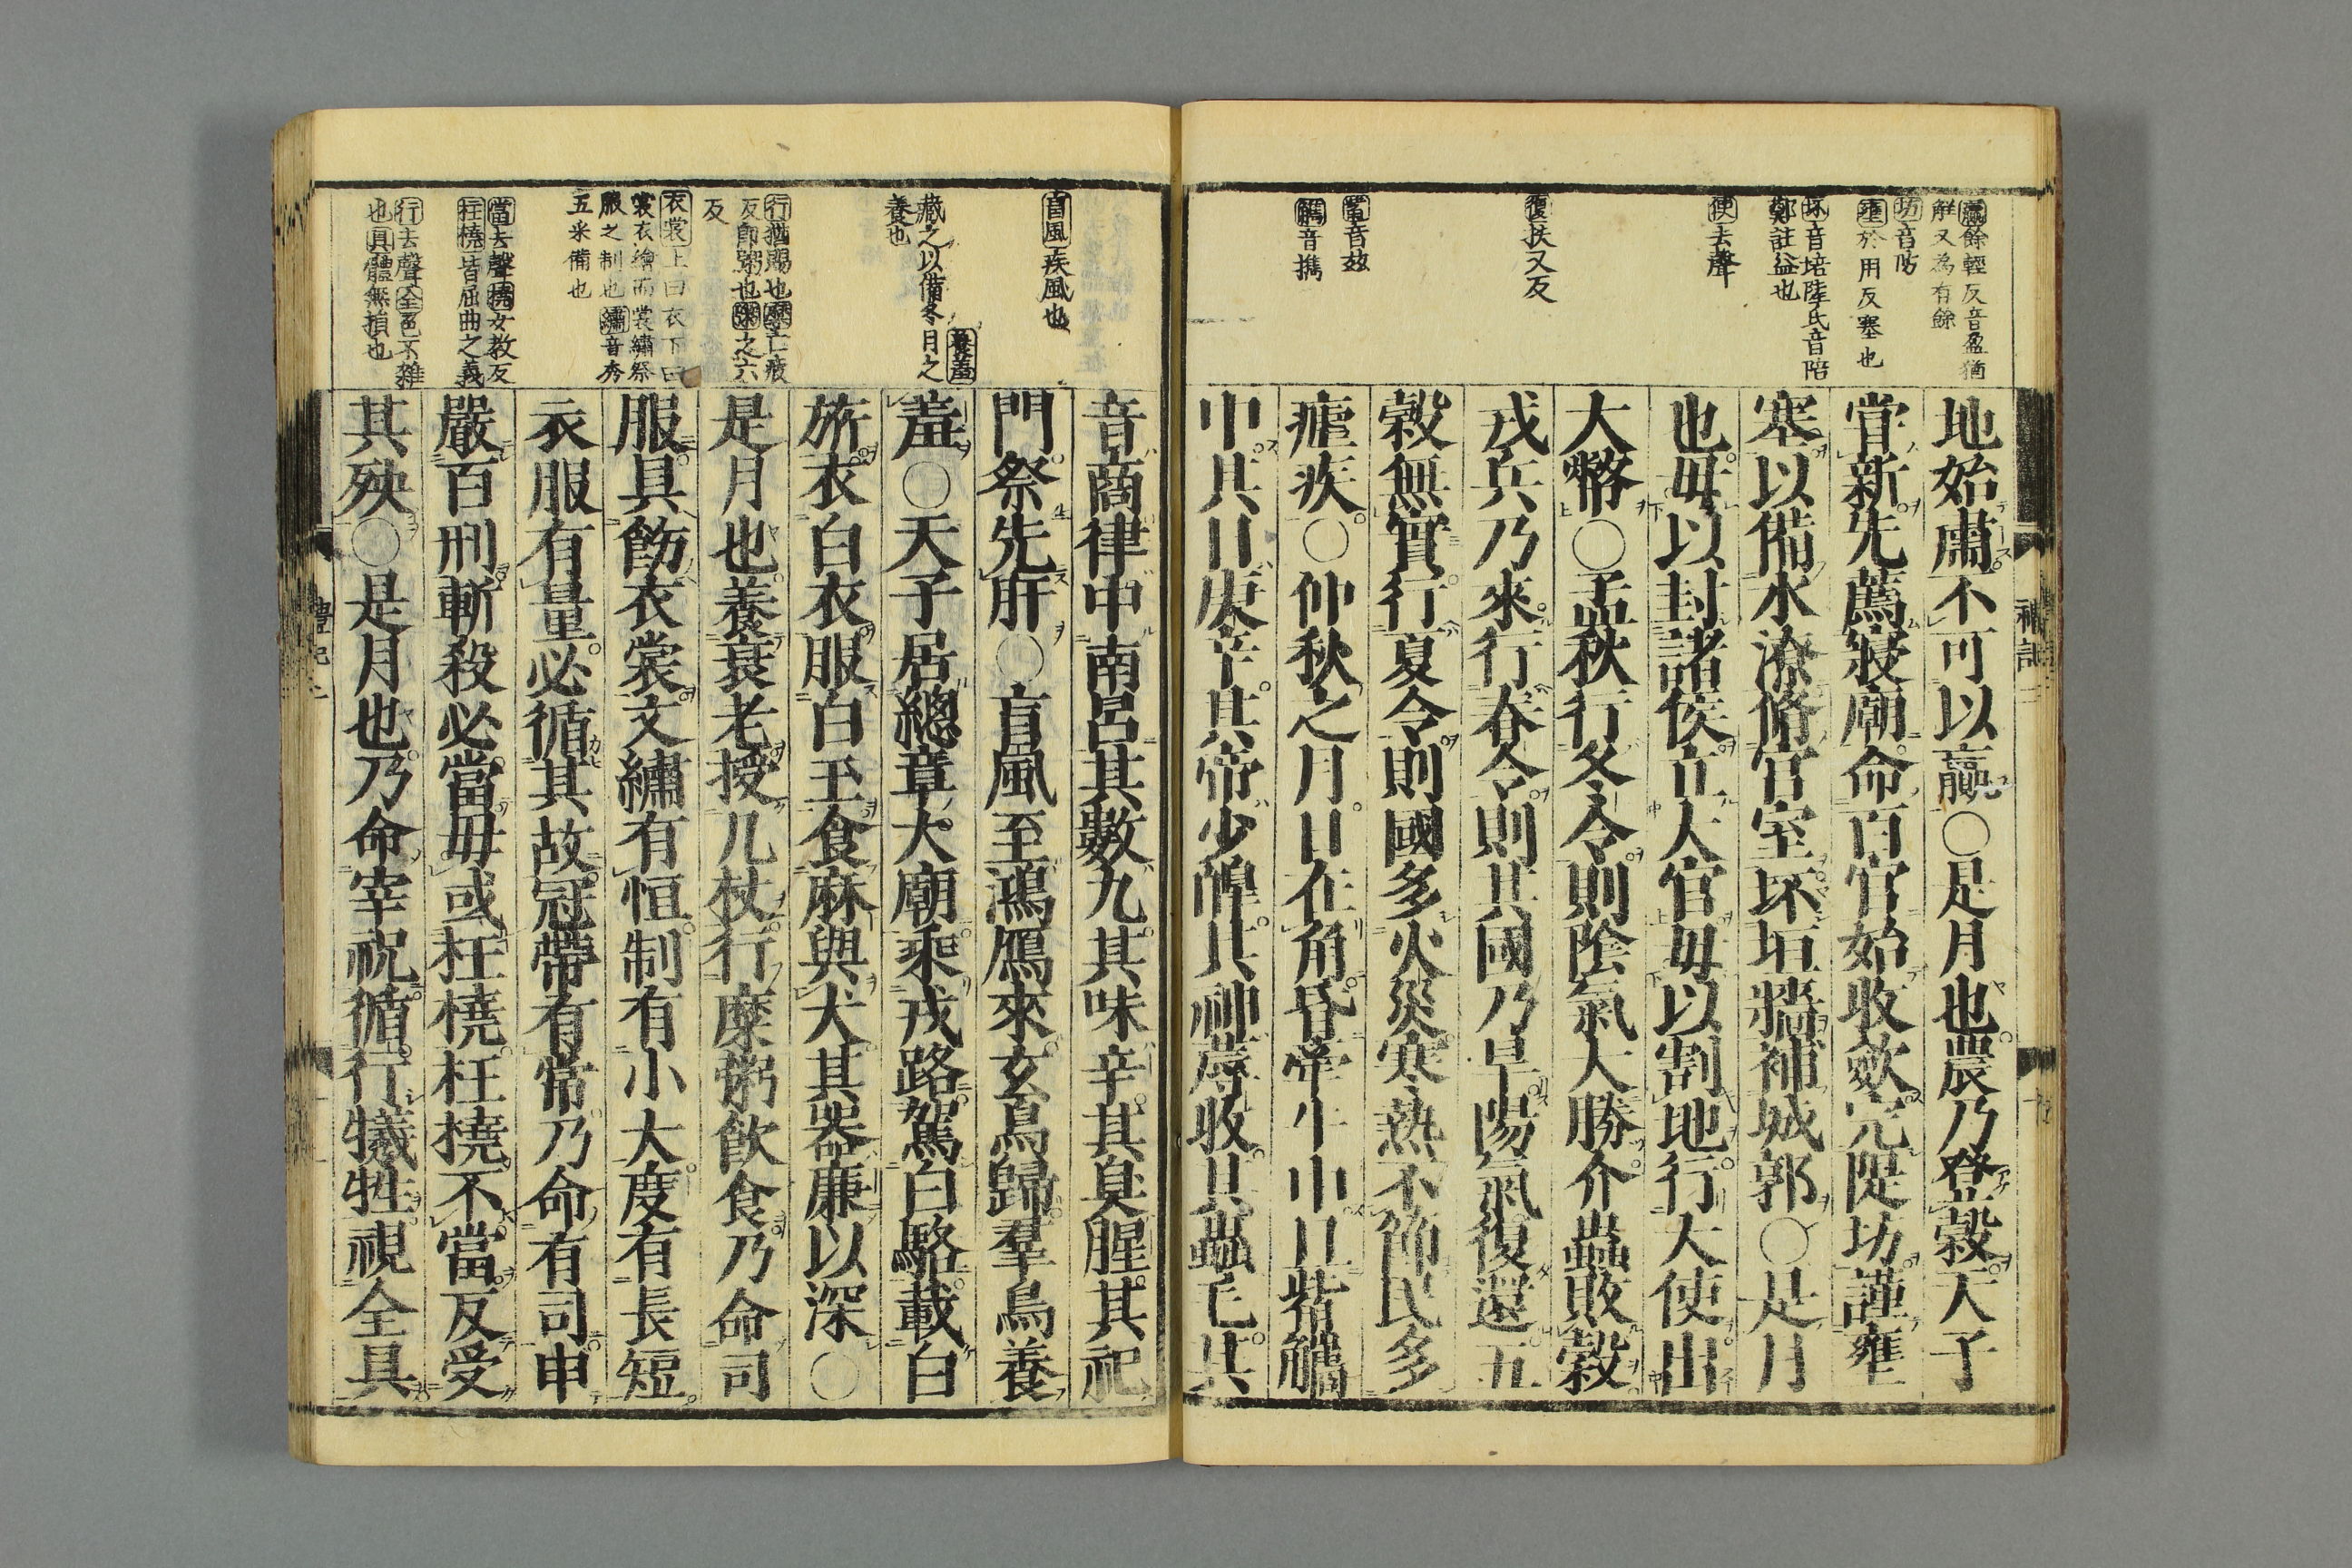 地始肅不可以贏○是月也農乃登穀天子
嘗新先薦寢廟命百官始收斂完隄坊謹壅
塞以備水潦脩宮室坏垣牆補城郭○是月
也毋以封諸侯立大官毋以割地行大使出
大幣○孟秋行冬令則陰氣大勝介蟲敗穀
戎兵乃來行春令則其國乃旱陽氣復還五
穀無實行夏令則國多火災寒熱不節民多
瘧疾○仲秋之月日在角昏牽牛中旦觜觿
中其日庚辛其帝少皞其神蓐收其蟲毛其
音商律中南呂其數九其味辛其臭腥其祀
門祭先肝○盲風至鴻鴈來玄鳥歸羣鳥養
羞○天子居總章大廟乘戎路駕白駱載白
旂衣白衣服白玉食麻與犬其器廉以深○
是月也養衰老授几杖行糜粥飲食乃命司
服具飭衣裳文繡有恒制有小大度有長短
衣服有量必循其故冠帶有常乃命有司申
嚴百刑斬殺必當毋或枉橈枉橈不當反受
其殃○是月也乃命宰祝循行犧牲視全具
贏餘輕反音盈猶
解又為有餘
坊音防
壅於用反塞也
坏音培陸氏音陪
鄭註益也
使去聲
復扶又反
觜音玆
觿音携
盲風疾風也
養羞
藏之以備冬月之
養也
行猶賜也糜亡皮
反即粥也粥之六
反
衣裳上曰衣下曰
裳衣繪而裳繡祭
服之制也繡音秀
五采備也
當去聲橈女教反
枉橈皆屈曲之義
行去聲全色不雜
也具體無損也
禮記